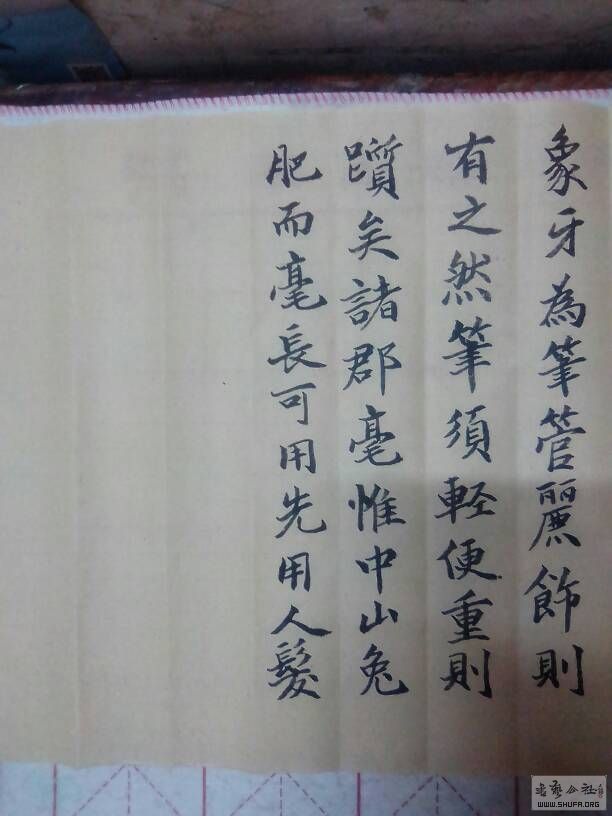 象牙為筆管麗飾則
有之然筆須輕便重則
躓矣諸郡毫惟中山兔
肥而毫長可用先用人髮
WWW.SHUFA.ORG